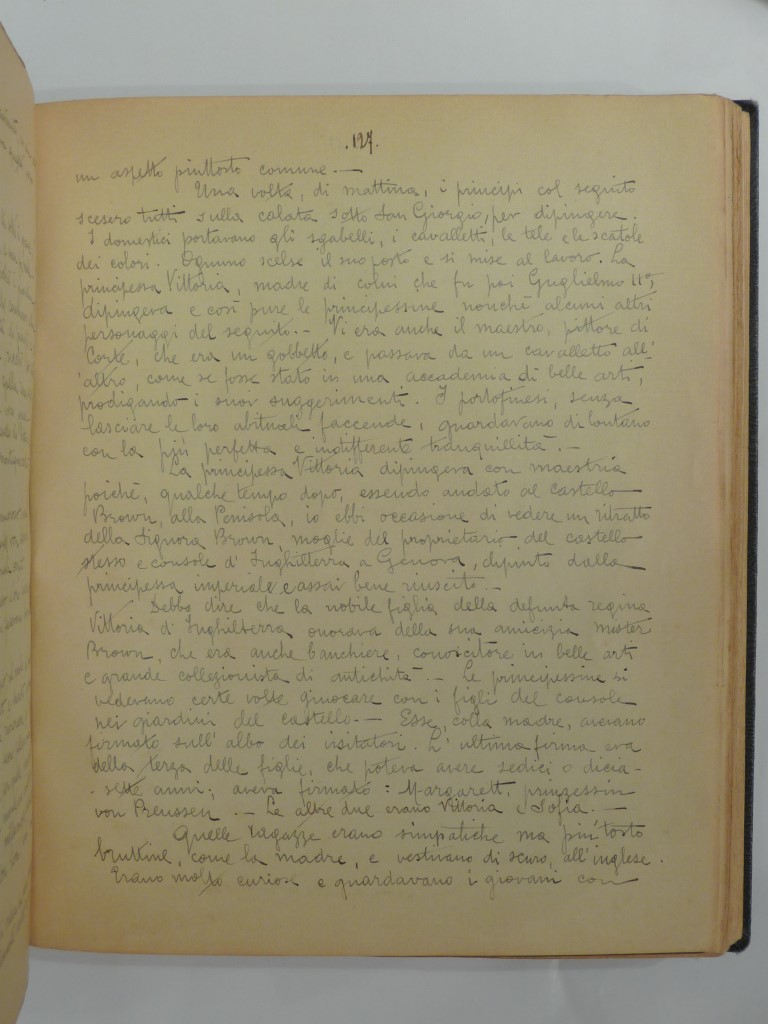 .127.
un aspetto piuttosto comune. —
Una volta, di mattina, i principi col seguito
scesero tutti sulla calata sotto San Giorgio, per dipingere.
I domestici portavano gli sgabelli, i cavalletti, le tele e le scatole
dei colori. Ognuno scelse il suo posto e si mise al lavoro. La
principessa Vittoria, madre di colui che fu poi Guglielmo IIº,
dipingeva e così pure le principessine nonchè alcuni altri
personaggi del seguito. - Vi era anche il maestro, pittore di
Corte, che era un gobbetto, e passava da un cavalletto all'
altro, come se fosse stato in una accademia di belle arti,
prodigando i suoi suggerimenti. I portofinesi, senza
lasciare le loro abituali faccende, guardavano di lontano
con la più perfetta e indifferente tranquillità. —
La principessa Vittoria dipingeva con maestria
poichè, qualche tempo dopo, essendo andato al castello
Brown, alla Penisola, io ebbi occasione di vedere un ritratto
della Signora Brown, moglie del proprietario del castello
stesso e console d'Inghilterra a Genova, dipinto dalla
principessa imperiale e assai bene riuscito. —
Debbo dire che la nobile figlia della defunta regina
Vittoria d'Inghilterra onorava della sua amicizia mister
Brown, che era anche banchiere, conoscitore in belle arti
e grande collezionista di antichità. — Le principessine si
vedevano certe volte giuocare con i figli del console
nei giardini del castello. — Esse, colla madre, avevano
firmato sull'albo dei visitatori. L'ultima firma era
della terza delle figlie, che poteva avere sedici o dicia-
sette anni; aveva firmato: Margarett, prinzessin
von Preussen. — Le altre due erano Vittoria e Sofia. —
Quelle ragazze erano simpatiche ma piuttosto
bruttine, come la madre, e vestivano di scuro, all'inglese.
Erano molto curiose e guardavano i giovani con